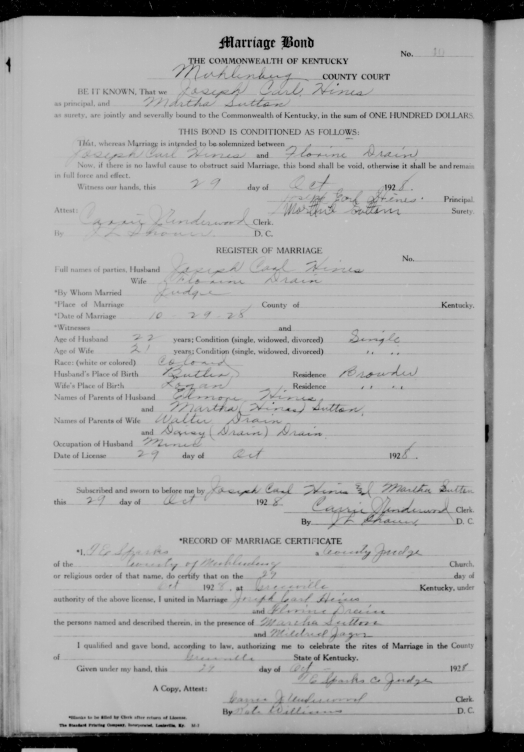 Marriage Bond
No. 10
THE COMMONWEALTH OF KENTUCKY
Muhlenburg COUNTY COURT
BE IT KNOWN, That we Joseph Carl Hines
as principal, and Martha Sutton
as surety, are jointly and severally bound to the Commonwealth of Kentucky, in the sum of ONE HUNDRED DOLLARS.
THIS BOND IS CONDITIONED AS FOLLOWS:
That, whereas Marriage is intended to be solemnized between
Joseph Carl Hines and Florine Drain
Now, if there is no lawful cause to obstruct said Marriage, this bond shall be void, otherwise it shall be and remain
in full force and effect.
Witness our hands, this 29 day of Oct 1928.
Joseph Carl Hines Principal
Attest: Martha Sutton Surety.
Carrie J Underwood Clerk.
By D. C.
REGISTER OF MARRIAGE
No.
Full names of parties, Husband Joseph Carl Hines
Wife Florine Drain
*By Whom Married Judge
*Place of Marriage County of Kentucky.
*Date of Marriage 10-29-28
*Witnesses and
Age of Husband 22 years; Condition (single, widowed, divorced) Single
Age of Wife 21 years; Condition (single, widowed, divorced) " "
Race: (white or colored) Colored
Husband's Place of Birth Butler Residence Browder
Wife's Place of Birth Logan Residence " "
Names of Parents of Husband Hines
and Martha (Hines) Sutton
Names of Parents of Wife Walter Drain
and Daisy (Drain) Drain
Occupation of Husband Miner
Date of License 29 day of Oct 1928.
Subscribed and sworn to before me by Joseph Carl Hines & Martha Sutton
this 29 day of Oct 1928
Carrie J Underwood Clerk
By D. C.
*RECORD OF MARRIAGE CERTIFICATE
*I, Sparks County Judge
of the County of Muhlenburg Church,
or religious order of that name, do certify that on the 29 day of
Oct 1928, at Greenville Kentucky, under
authority of the above license, I united in Marriage Joseph Carl Hines
and Florine Drain
the persons named and described therein, in the presence of Martha Sutton
and Mildred
I qualified and gave bond, according to law, authorizing me to celebrate the rites of Marriage in the County
of Greenville State of Kentucky.
Given under my hand, this 29 day of Oct 1928
Sparks Co Judge
A Copy, Attest:
Carrie J Underwood Clerk.
By Williams D. C.
*Blanks to be filled by Clerk after return of License.
The Standard Printing Company, Incorporated, Louisville, Ky.